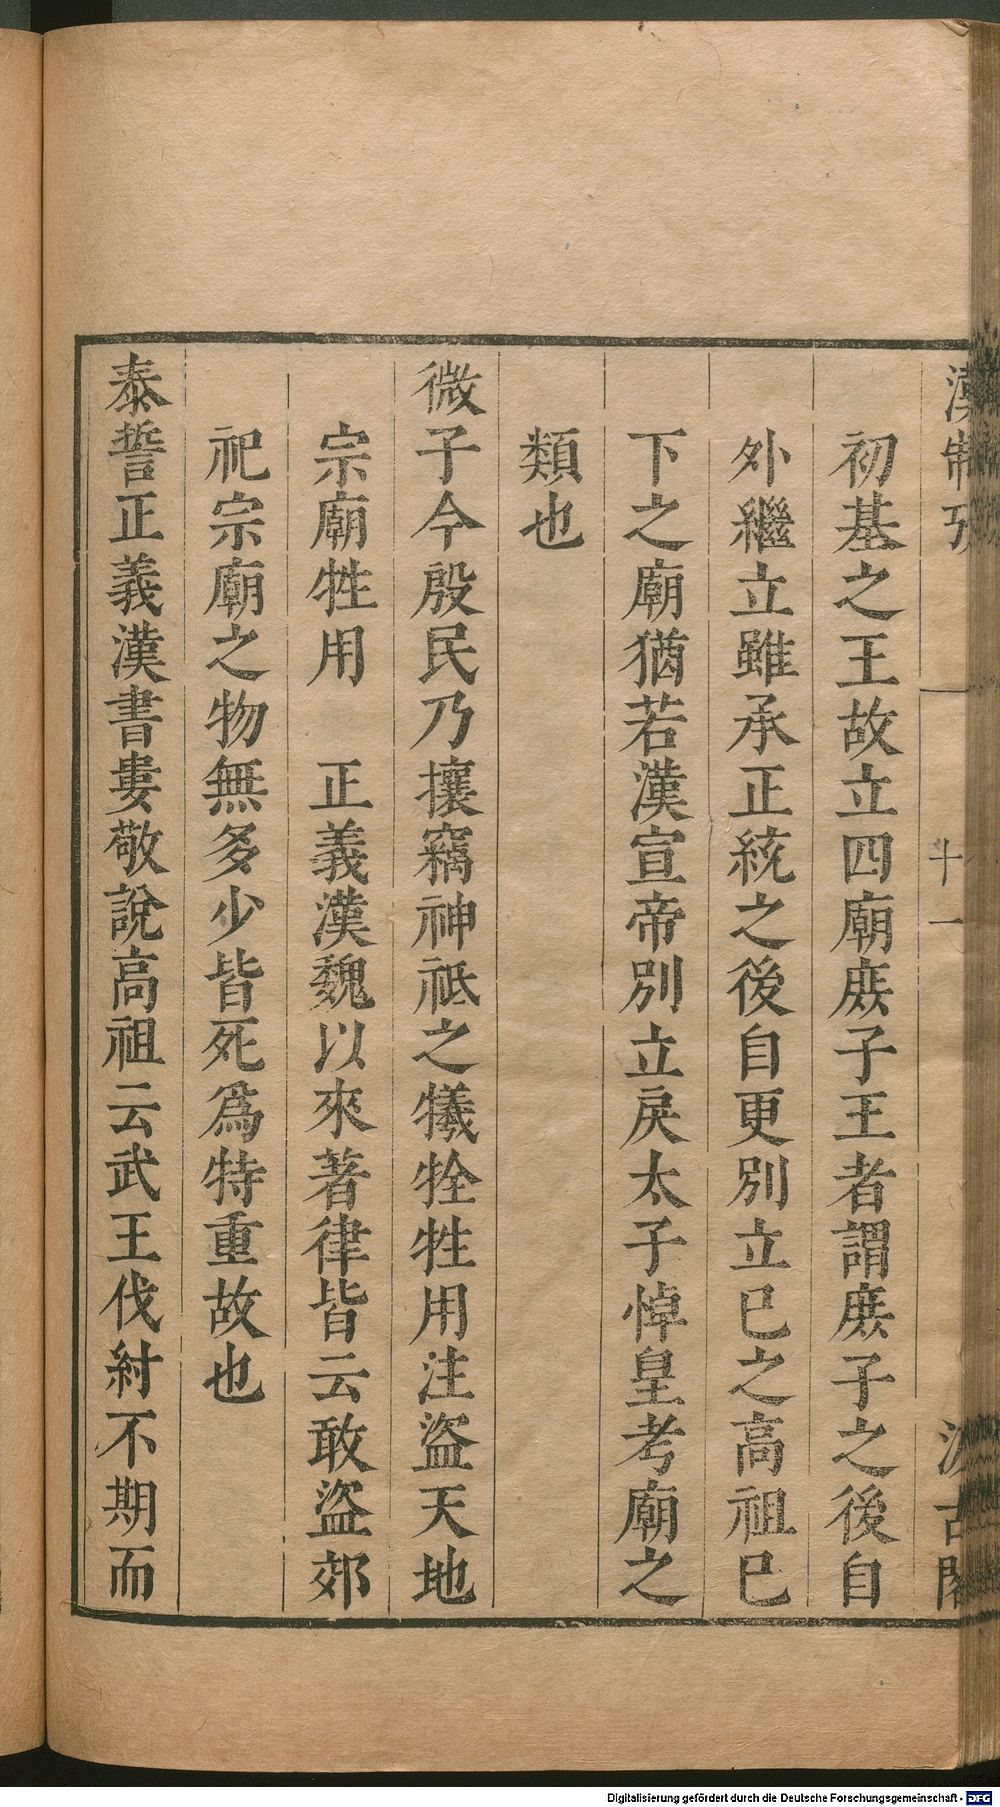 漢制攷 十一 汲古閣
初基之王故立四廟庻子王者謂庻子之後自
外繼立雖承正統之後自更別立已之高祖已
下之廟猶若漢宣帝別立戾太子悼皇考廟之
類也
微子今殷民乃攘竊神祇之犧牷牲用注盜天地
宗廟牲用 正義漢魏以來著律皆云敢盜郊
祀宗廟之物無多少皆死爲特重故也
泰誓正義漢書婁敬說高祖云武王伐紂不期而
Digitalisierung gefördert durch die Deutsche Forschungsgemeinschaft - DFG